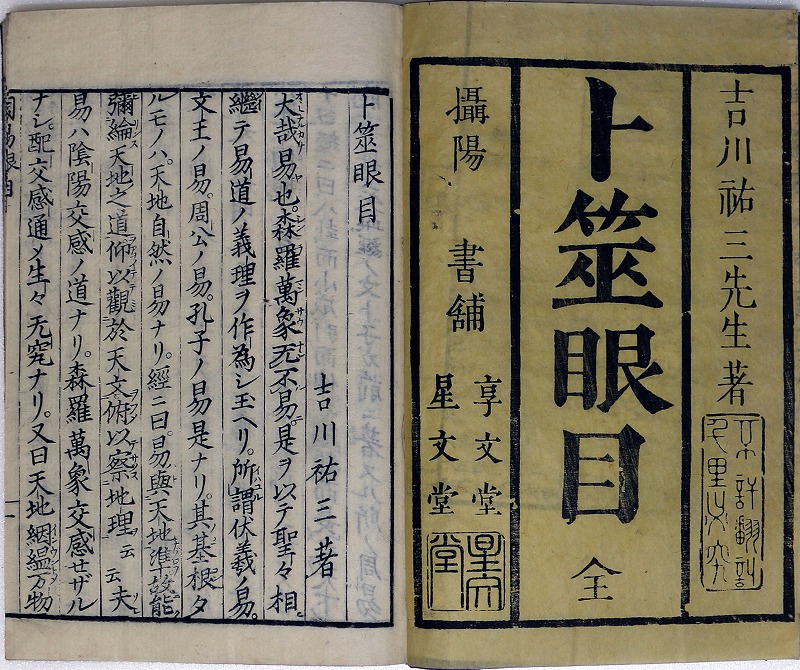 吉川祐三先生著
卜筮眼目 全
攝陽 書舗
享文堂
星文堂
星文堂
卜筮眼目
吉川祐三著
大哉易也。森羅萬象无不易。是ヲ以テ聖々相
繼テ易道ノ義理ヲ作為シ玉ヘリ。所謂伏羲ノ易。
文王ノ易。周公ノ易。孔子ノ易是ナリ。其基根タ
ルモノハ。天地自然ノ易ナリ。經ニ曰。易與天地準。故能
彌綸天地之道仰以觀於天文。俯以察地理云云夫
易ハ陰陽交感ノ道ナリ。森羅萬象交感セザル
ナシ。配交感通メ生々无究ナリ。又曰天地絪縕万物